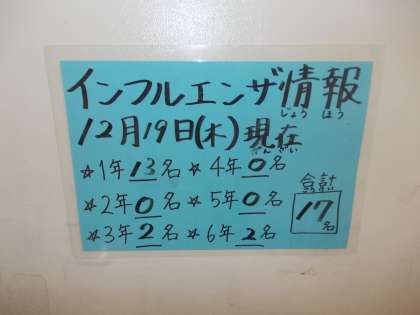 インフルエンザ情報
じょうほう
12月19日(木)現在
げんざい
☆1年13名 ☆4年0名
☆2年0名 ☆5年0名
☆3年2名 ☆6年2名
合計
17名